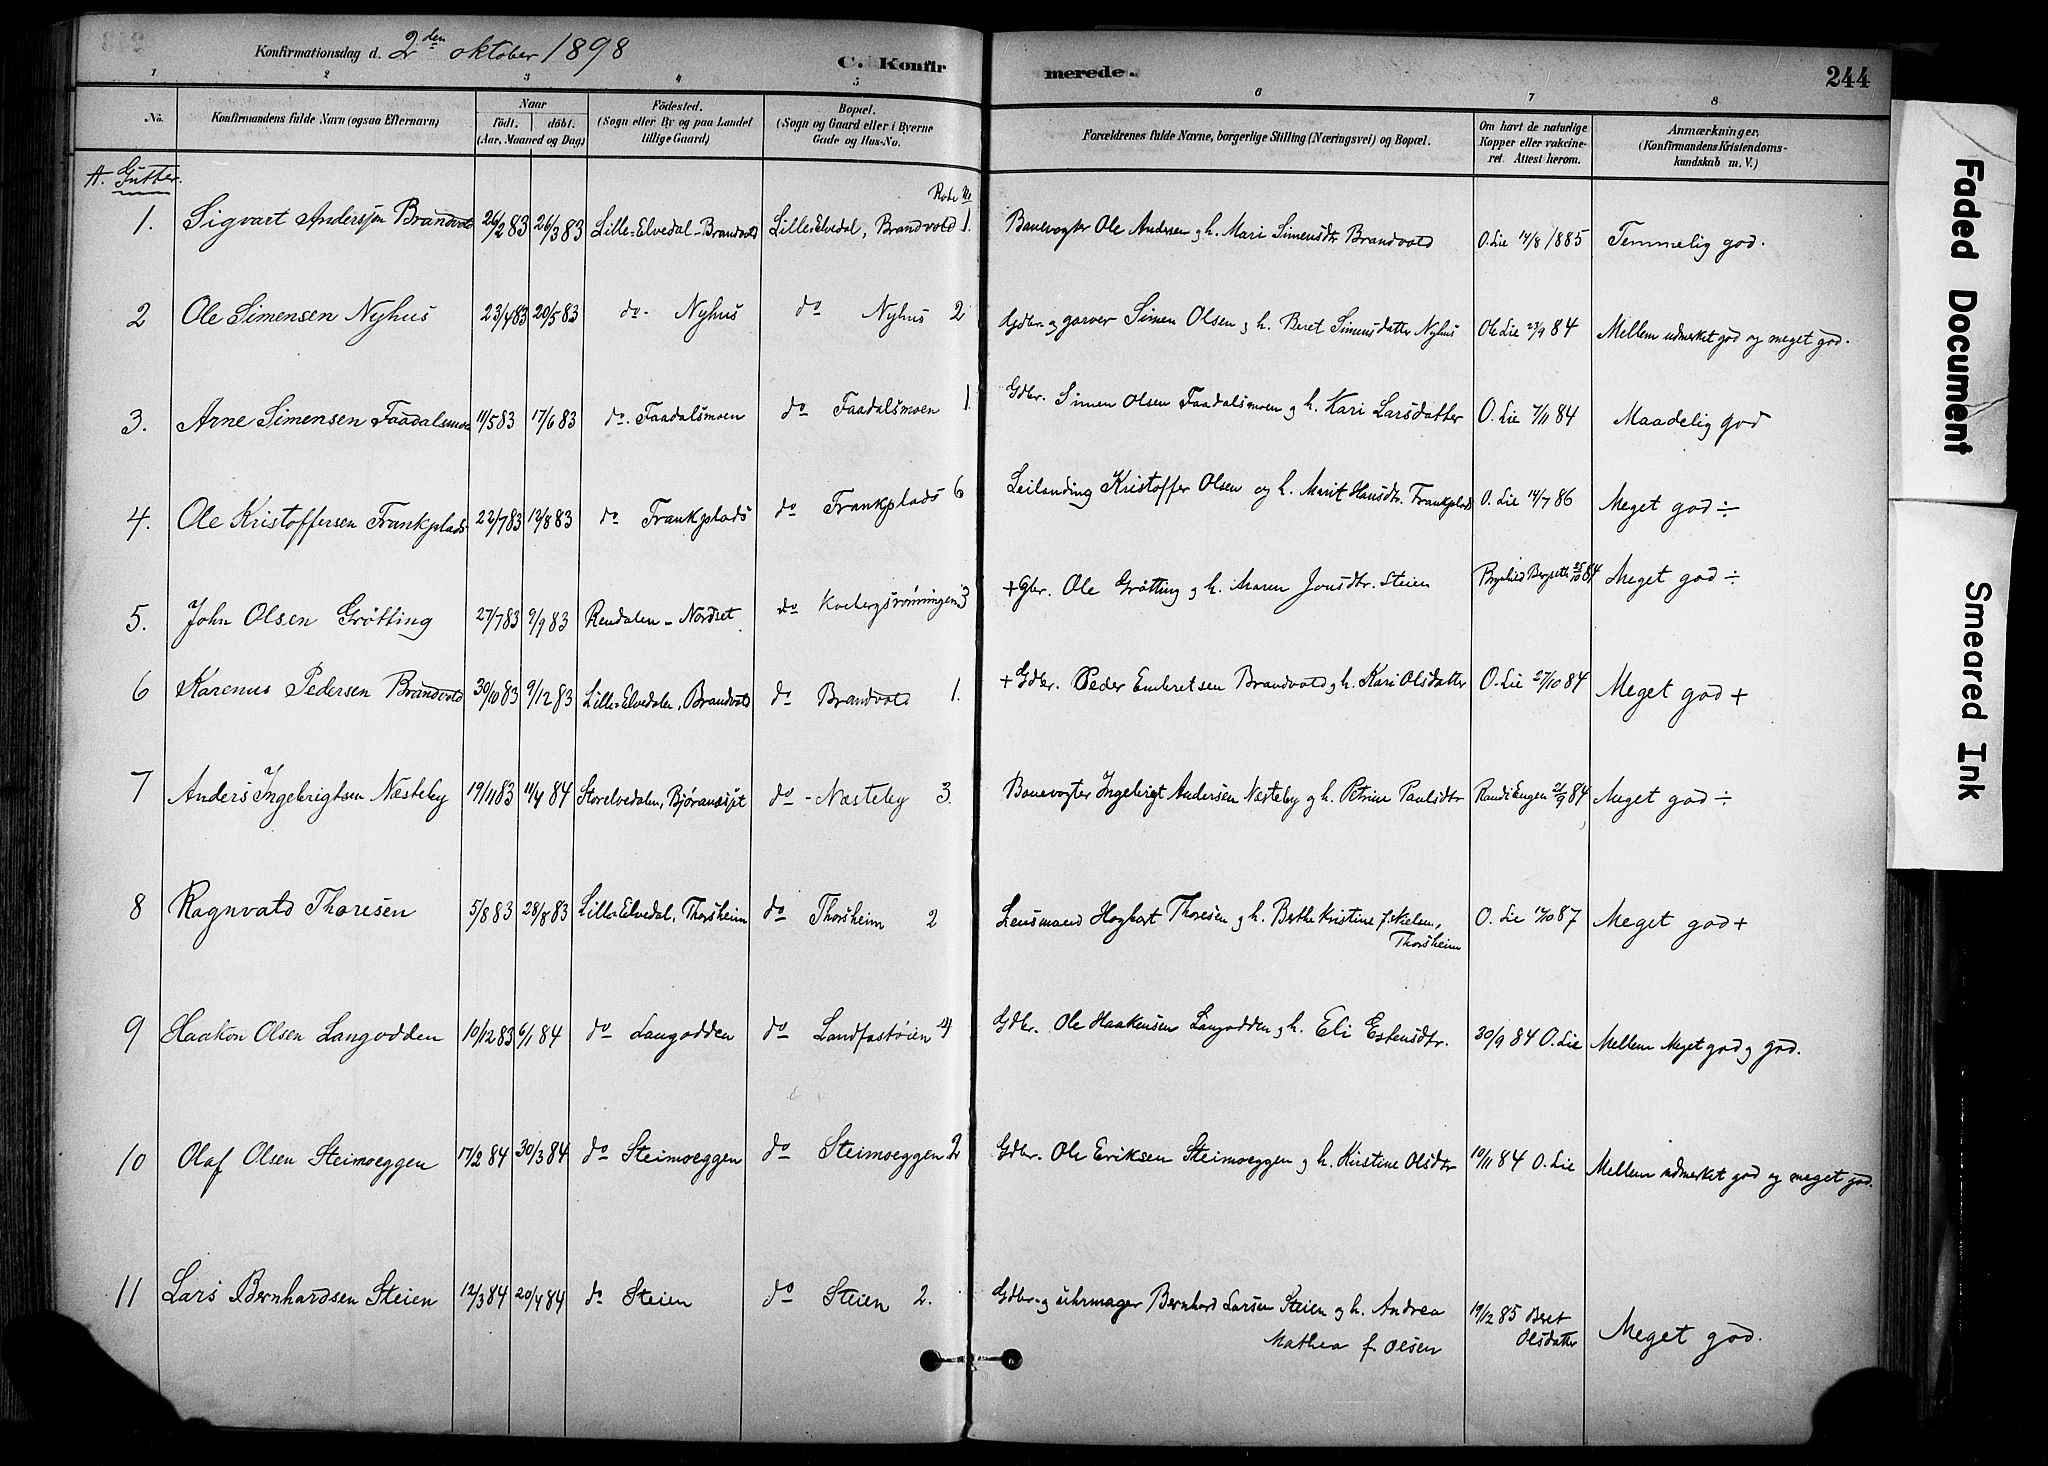 Konfirmationsdag d. 2den oktober 1898 C. Konfirmerede. 244
1 2 3 4 5 6 7 8
No. Konfirmandens fulde Navn (ogsaa Efternavn) Naar födt. döbt. (Aar, Maaned og Dag) Födested. (Sogn eller By og paa Landet tillige Gaard) Bopæl. (Sogn og Gaard eller i Byerne Gade og Hus-No. Forældrenes fulde Navne, borgerlige Stilling (Næringsvei) og Bopæl. Om havt de naturlige Kopper eller vakcineret. Attest herom. Anmærkninger. (Konfirmandens Kristendomskundskab m. V.)
A. Gutter. Rode No
1. Sigvart Anderssen Brandvold 26/2 83 26/3 83 Lille-Elvedal-Brandvold Lille-Elvedal, Brandvold 1. Banevogter Ole Andersen og h. Mari Simensdtr Brandvold O. Lie 14/8 1885 Temmelig god.
2 Ole Simensen Nyhus 23/4 83 20/5 83 do - Nyhus do Nyhus 2 Gdbr. og garver Simen Olsen og h. Beret Simensdatter Nyhus Ole Lie 23/9 84 Mellem udmerket god og meget god.
3. Arne Simensen Faadalsmoen 11/5 83 17/6 83 do. Faadalsmoen do Faadalsmoen 1. Gdbr. Simen Olsen Faadalsmoen og h. Kari Larsdatter O. Lie 7/11 84 Maadelig god
4. Ole Kristoffersen Frankplads 22/7 83 12/8 83 do Frankplads do Frankplads 6 Leilending Kristoffer Olsen og h. Marit Hansdtr. Frankplads O. Lie 14/7 86 Meget god ÷
5. John Olsen Grøtting 27/7 83 9/9 83 Rendalen - Nordset do Kvebergsrønningen 3 + Gbr. Ole Grøtting og h. Maren Jonsdtr. Steien Bergseth 25/10 84 Meget god ÷
6 Karenus Pedersen Brandvold 30/10 83 9/12 83 Lille-Elvedalen, Brandvold do Brandvold 1. + Gdbr. Peder Embretsen Brandvold og h. Kari Olsdatter O. Lie 27/10 84 Meget god +
7 Anders Ingebrigtsen Næsteby 19/11 83 14/4 84 Storelvedalen, Bjøranesset do - Næsteby 3. Banevogter Ingebrigt Andersen Næsteby og h. Petrine Paulsdtr Randi Engen 21/9 84 Meget god ÷
8 Ragnvald Thoresen 5/8 83 28/8 83 Lille-Elvedal, Thorsheim do Thorsheim 2 Lensmand Hagbart Thoresen og h. Berthe Kristine f. Nielsen, Thorsheim O. Lie 12/10 87 Meget god +
9 Haakon Olsen Langodden 10/12 83 6/1 84 do Langodden do Landfastøien 4 Gdbr. Ole Haakensen Langodden og h. Eli Estensdtr. 30/9 84 O. Lie Mellem Meget god og god.
10 Olaf Olsen Steimoeggen 17/2 84 30/3 84 do Steimoeggen do Steimoeggen 2 Gdbr. Ole Eriksen Steimoeggen og h. Kirstine Olsdtr 10/11 84 O. Lie Mellem udmerket god og meget god.
11 Lars Bernhardsen Steien 12/3 84 20/4 84 do Steien do Steien 2. Gdbr. og uhrmager Bernhard Larsen Steien og h. Andrea Mathea f. Olsen 19/12 85 Beret Olsdatter Meget god.
Faded Document
Smeared Ink